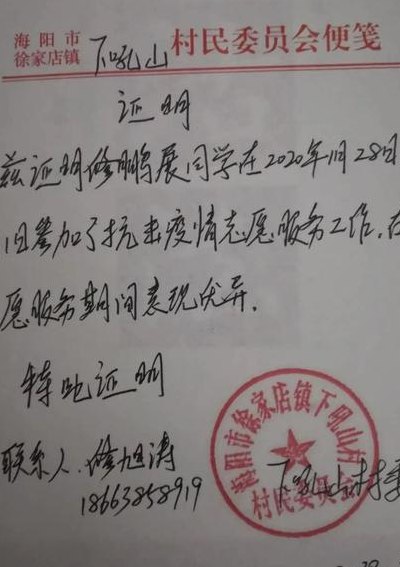 海阳市
徐家店镇 下吼山 村民委员会便笺
证明
兹证明修鹏展同学在2020年11月28日
旧参加了抗击疫情志愿服务工作,在
愿服务期间表现优异.
特此证明
联系人:修旭涛
18663858919
下吼山村委
海阳市徐家店镇下吼山村
村民委员会